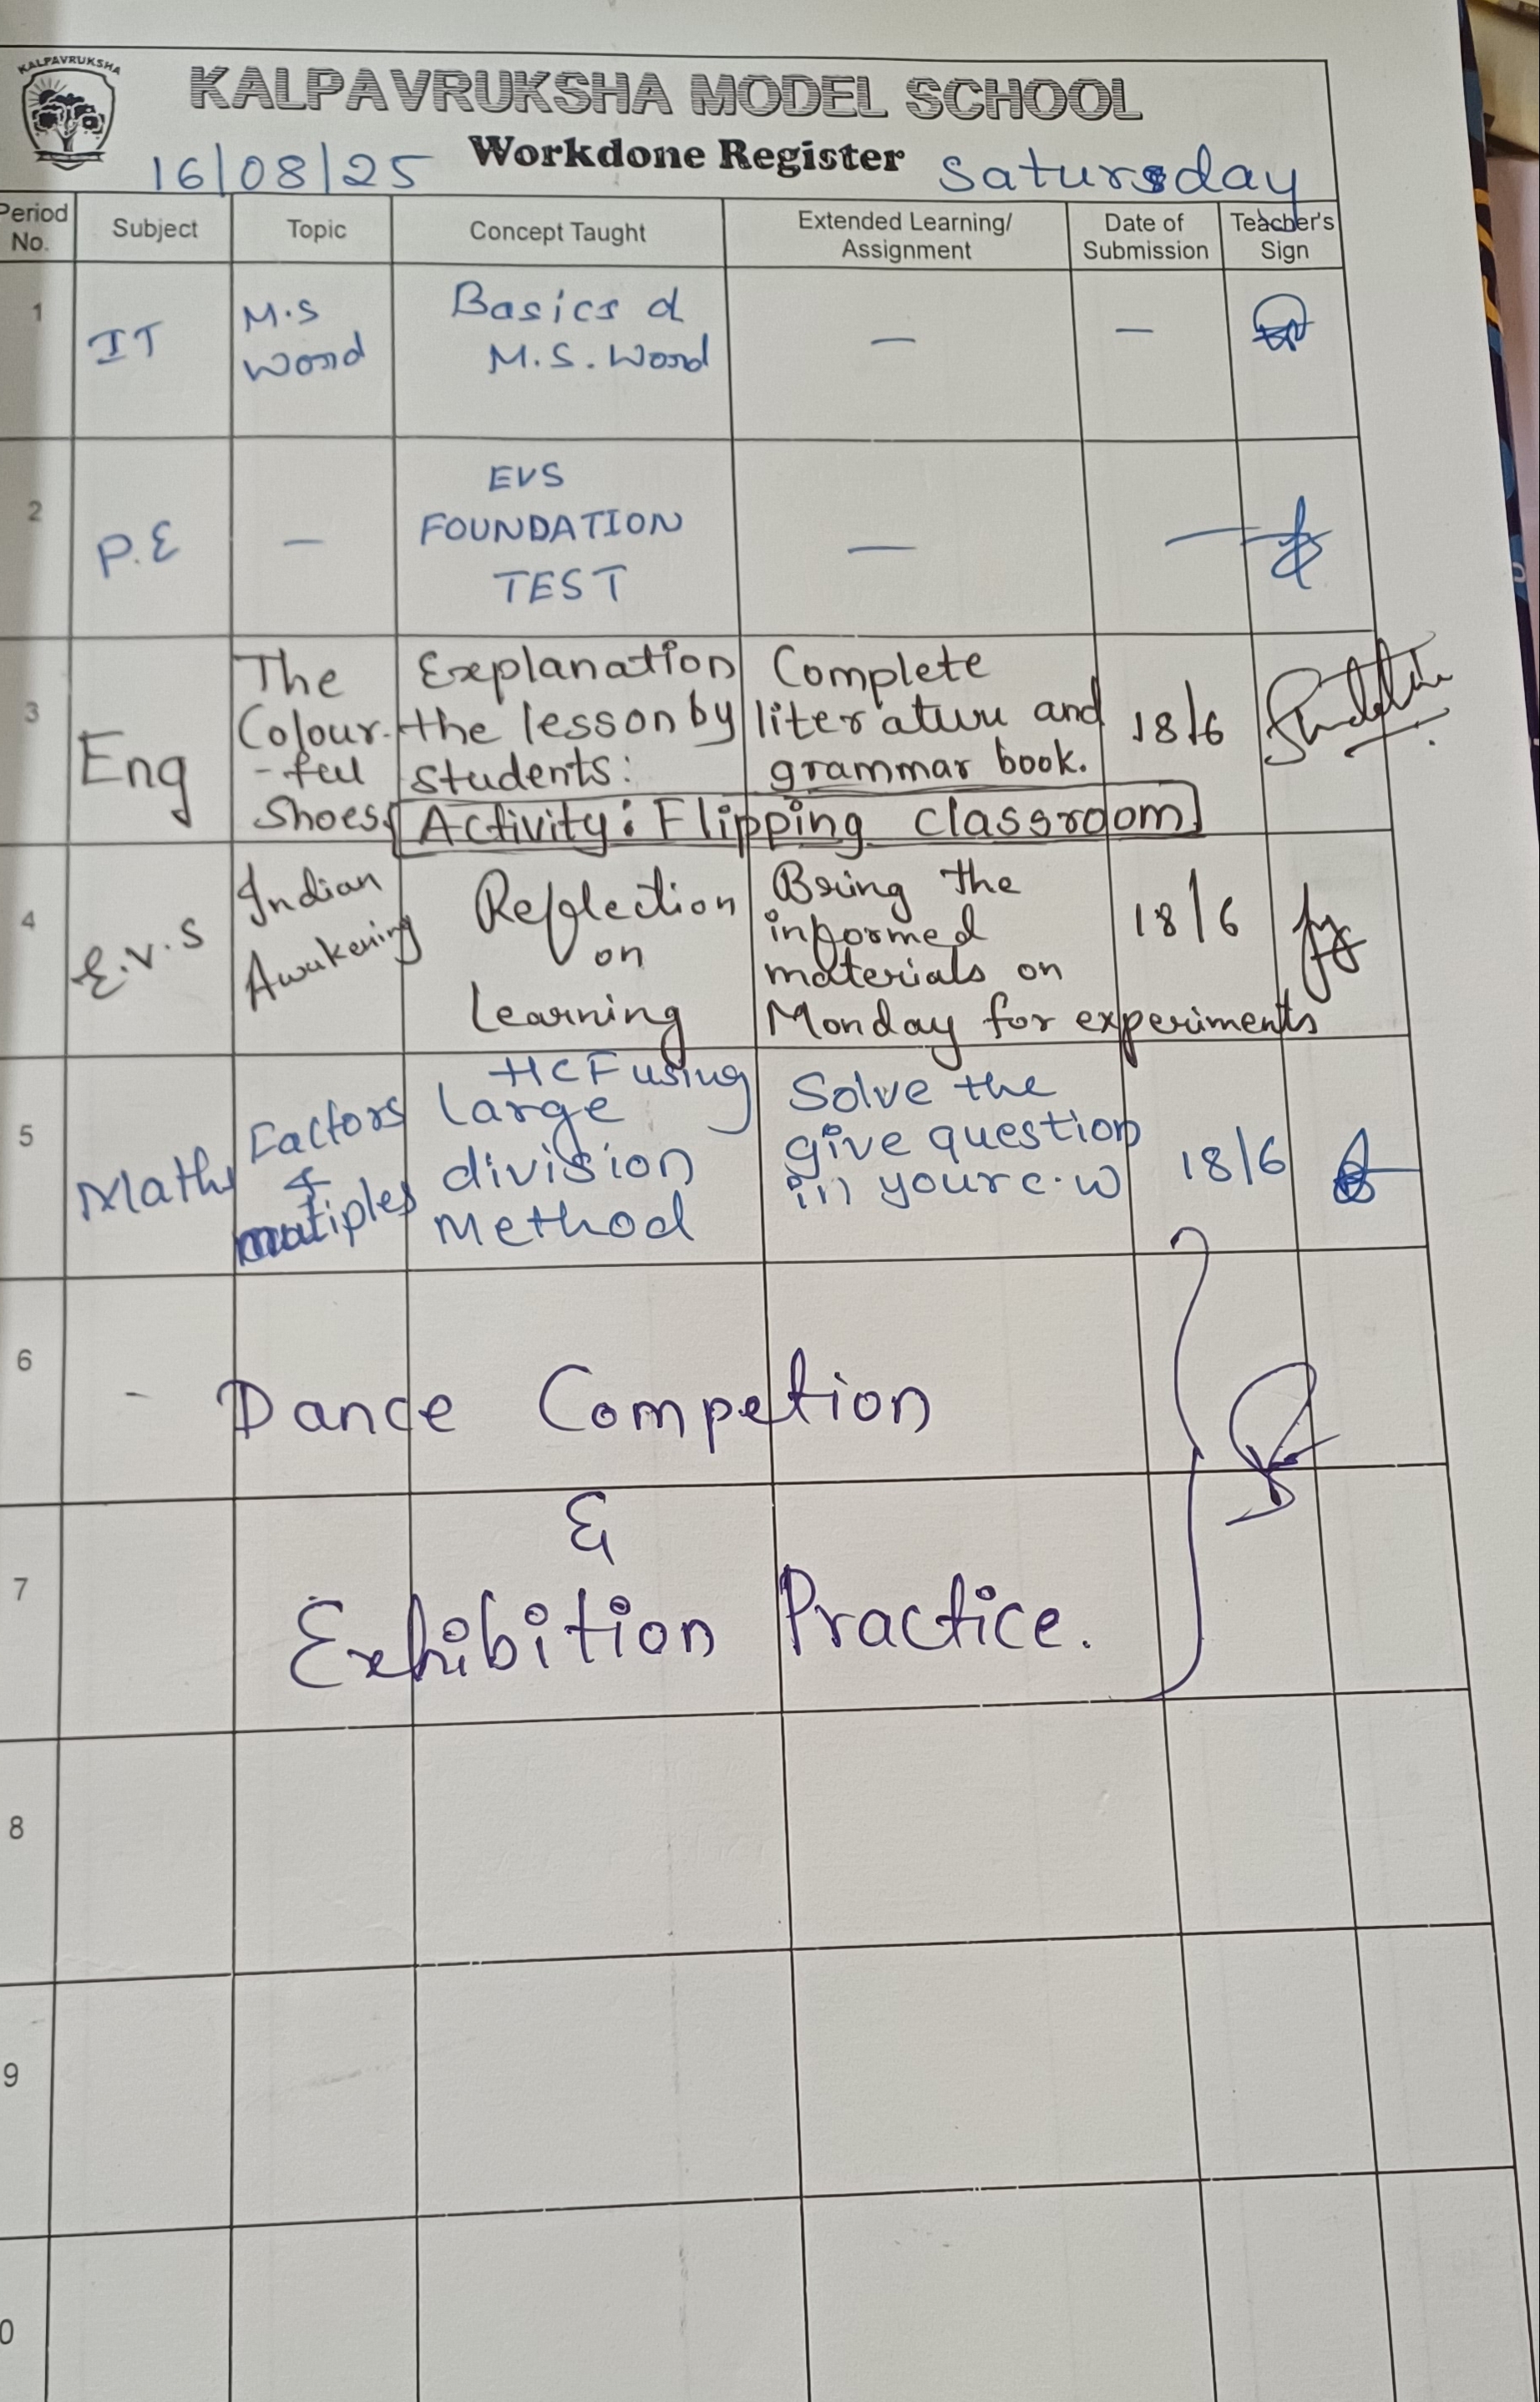 KALPAVRUKSHA
KALPAVRUKSHA MODEL SCHOOL
Workdone Register
16/08/25 Saturday
Period No. Subject Topic Concept Taught Extended Learning/ Assignment Date of Submission Teacher's Sign
1 IT M.S Word Basics of M.S. Word — —
2 P.E — EVS FOUNDATION TEST — —
3 Eng The Colour- -ful Shoes Explanation the lesson by students: Complete literature and grammar book. 18/6
Activity: Flipping classroom
4 E.V.S Indian Awakening Reflection on Learning Bring the informed materials on Monday for experiments 18/6
5 Maths Factors & mutiples HCF using Large division Method Solve the give question in your c.w 18/6
6 - Dance Competion
&
7 Exhibition Practice.
8
9
0